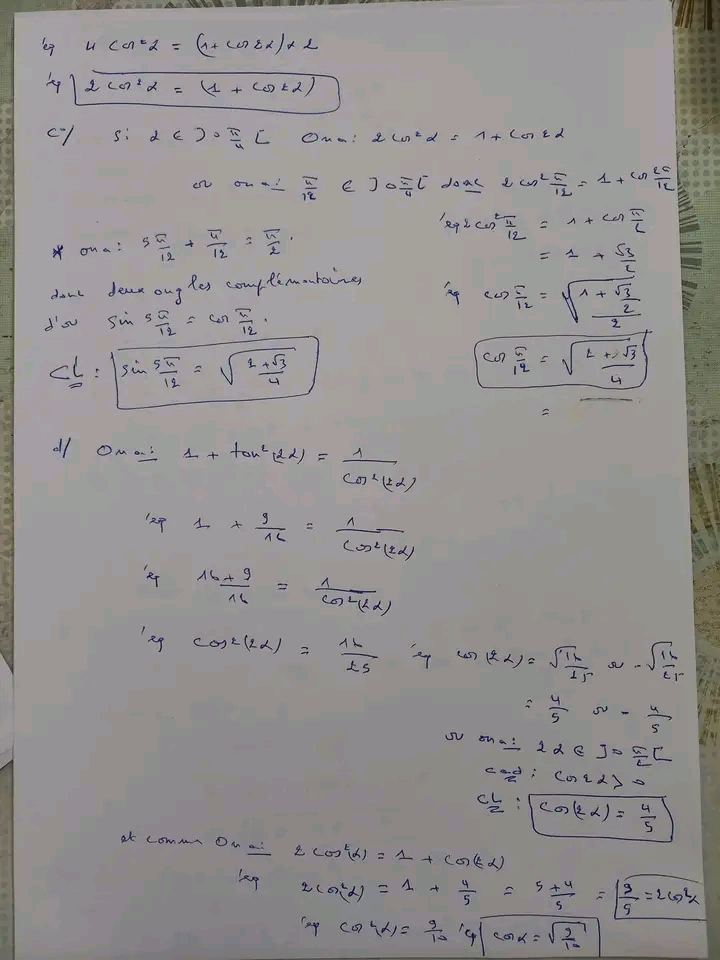 éq 4 cos²α = (1 + cos 2α) × 2
éq 2 cos²α = (1 + cos 2α)
c-/ Si α ∈ ]0 π/4[ On a: 2 cos²α = 1 + cos 2α
or on a: π/12 ∈ ]0 π/4[ donc 2 cos² π/12 = 1 + cos 2π/12
éq 2 cos² π/12 = 1 + cos π/6
= 1 + √3/2
* on a: 5π/12 + π/12 = π/2.
donc deux angles complémentaires
d'où sin 5π/12 = cos π/12.
éq cos π/12 = √((1 + √3/2)/2)
CL: sin 5π/12 = √((2 + √3)/4)
cos π/12 = √((2 + √3)/4)
=
d/ On a: 1 + tan²(2α) = 1/cos²(2α)
éq 1 + 9/16 = 1/cos²(2α)
éq (16 + 9)/16 = 1/cos²(2α)
éq cos²(2α) = 16/25 éq cos(2α) = √(16/25) ou -√(16/25)
= 4/5 ou - 4/5
or on a: 2α ∈ ]0 π/2[
cad: cos 2α > 0
CL: cos(2α) = 4/5
et comme On a: 2 cos²(α) = 1 + cos(2α)
éq 2 cos²(α) = 1 + 4/5 = (5 + 4)/5 = 9/5 = 2 cos²α
éq cos²(α) = 9/10 éq cos α = √(9/10)